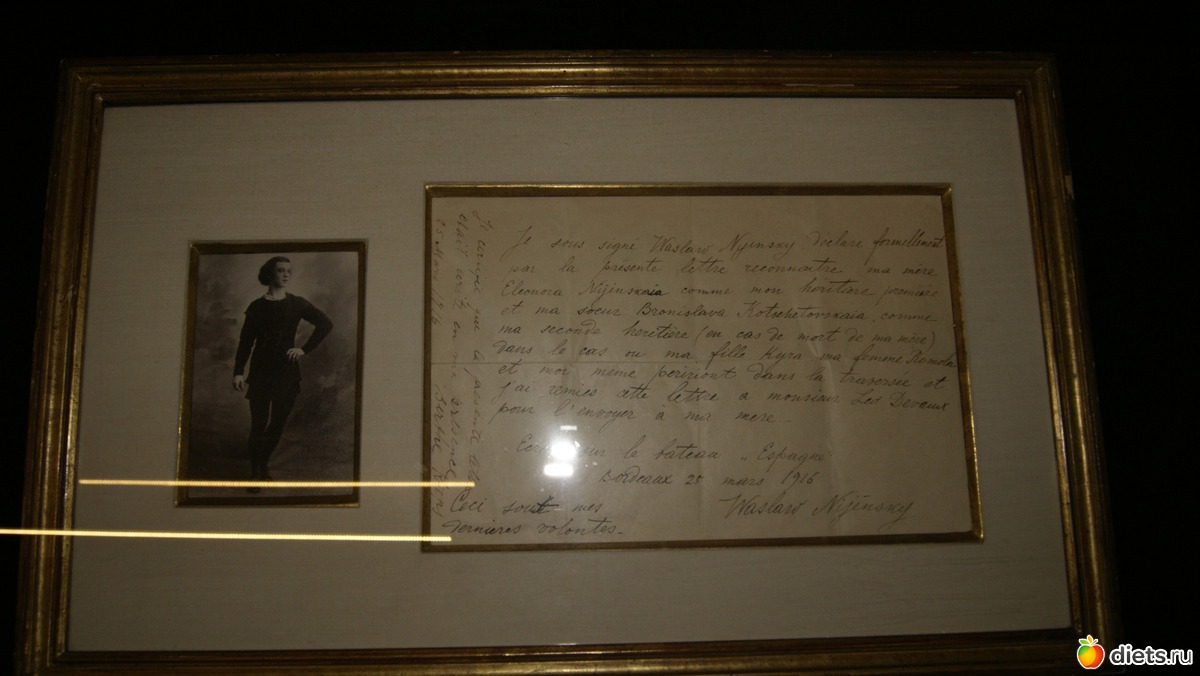 Je sous signé Waslaw Nijinsky déclare formellement
par la présente lettre reconnaitre ma mère
Eleonora Nijinskaia comme mon heritiere première
et ma soeur Bronislava Kotschetovskaia, comme
ma seconde heretière (en cas de mort de ma mère)
dans le cas ou ma fille Kyra ma femme Romola
et moi meme peririont dans la traversée et
j'ai remies cette lettre a monsieur Les Devaux
pour l'envoyer à ma mere -
sur le bateau „Espagne"
Bordeaux 25 mars 1916
Waslaw Nijinsky
Ceci sont mes
dernieres volontes -
Je certifie que la présente
était écrite en ma présence
25 Mars 1916
diets.ru